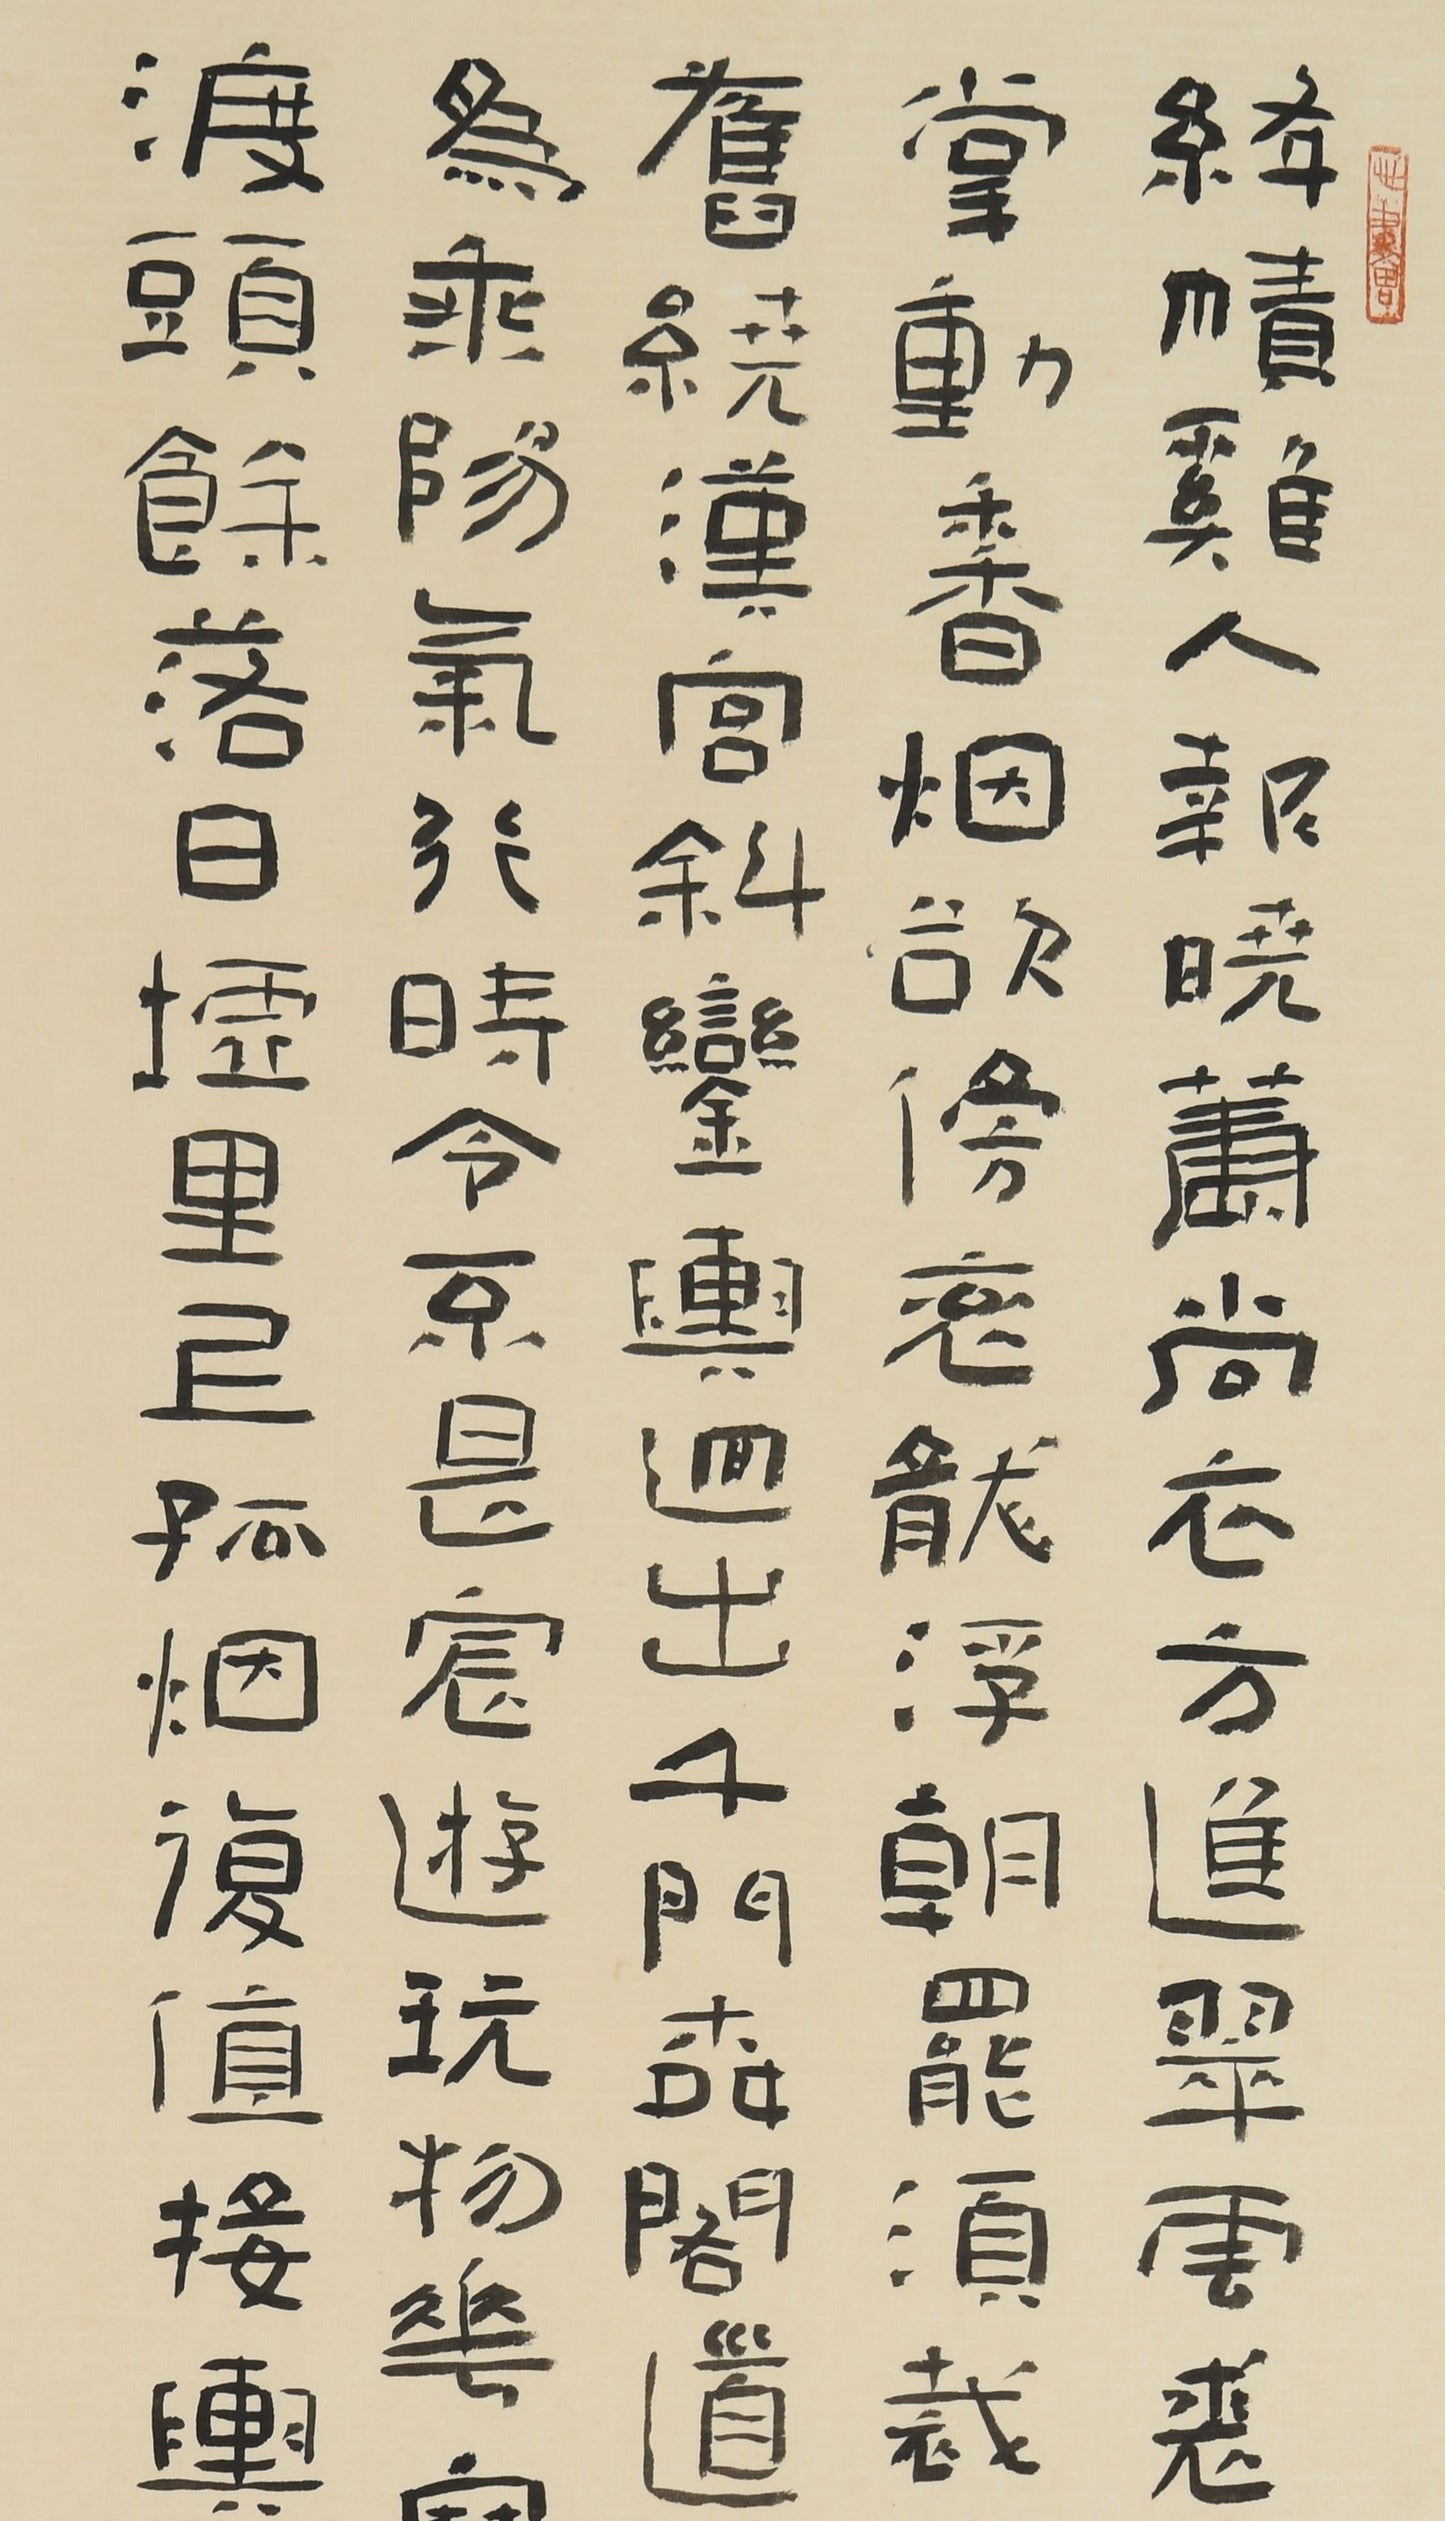 絳幘雞人報曉籌尚衣方進翠雲裘
掌動香烟欲傍衮龍浮朝罷須裁
舊繞漢宮斜鑾輿迴出千門柳閣道
為乘陽氣行時令不是宸遊玩物華寒
渡頭餘落日墟里上孤烟復值接輿